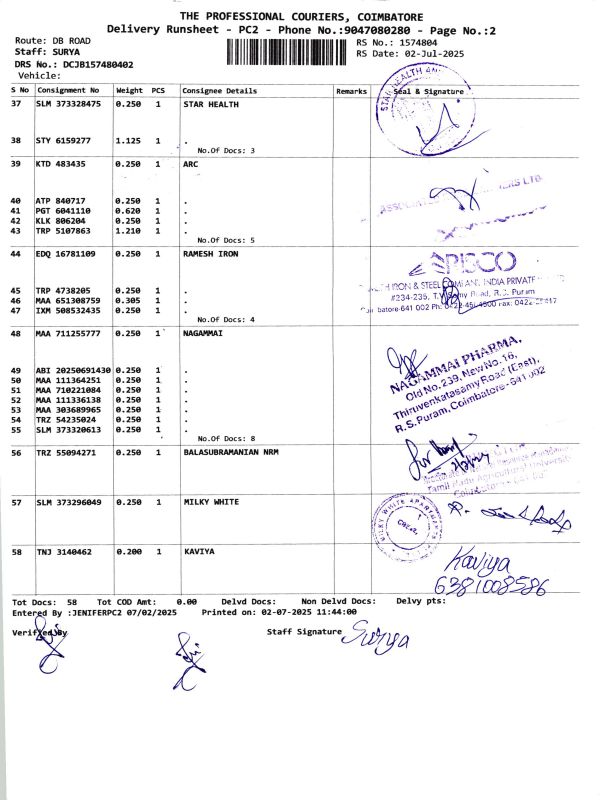 THE PROFESSIONAL COURIERS, COIMBATORE
Delivery Runsheet - PC2 - Phone No.:9047080280 - Page No.:2
Route: DB ROAD
RS No.: 1574804
Staff: SURYA
RS Date: 02-Jul-2025
DRS No.: DCJB157480402
Vehicle:
S No Consignment No Weight PCS Consignee Details Remarks Seal & Signature
37 SLM 373328475 0.250 1 STAR HEALTH
STAR HEALTH AN
38 STY 6159277 1.125 1 .
No.Of Docs: 3
39 KTD 483435 0.250 1 ARC
40 ATP 840717 0.250 1 .
41 PGT 6041110 0.620 1 .
42 KLK 806204 0.250 1 .
43 TRP 5107863 1.210 1 .
No.Of Docs: 5
44 EDQ 16781109 0.250 1 RAMESH IRON
PISCO
IRON & STEEL COMPANY INDIA PRIVATE
45 TRP 4738205 0.250 1 .
#234-235, T.V. Samy Road, R.S. Puram
46 MAA 651308759 0.305 1 .
47 IXM 508532435 0.250 1 .
No.Of Docs: 4
48 MAA 711255777 0.250 1 NAGAMMAI
NAGAMMAI PHARMA,
Old No.239, New No.16,
Thiruvenkatasamy Road (East),
R.S.Puram, Coimbatore-641 002
49 ABI 20250691430 0.250 1 .
50 MAA 111364251 0.250 1 .
51 MAA 710221084 0.250 1 .
52 MAA 111336138 0.250 1 .
53 MAA 303689965 0.250 1 .
54 TRZ 54235024 0.250 1 .
55 SLM 373320613 0.250 1 .
No.Of Docs: 8
56 TRZ 55094271 0.250 1 BALASUBRAMANIAN NRM
Tamil Nadu Agricultural University
57 SLM 373296049 0.250 1 MILKY WHITE
MILKY WHITE APARTMENTS
58 TNJ 3140462 0.200 1 KAVIYA
Kaviya
6381008586
Tot Docs: 58 Tot COD Amt: 0.00 Delvd Docs: Non Delvd Docs: Delvy pts:
Entered By :JENIFERPC2 07/02/2025 Printed on: 02-07-2025 11:44:00
Verified By
Staff Signature Surya